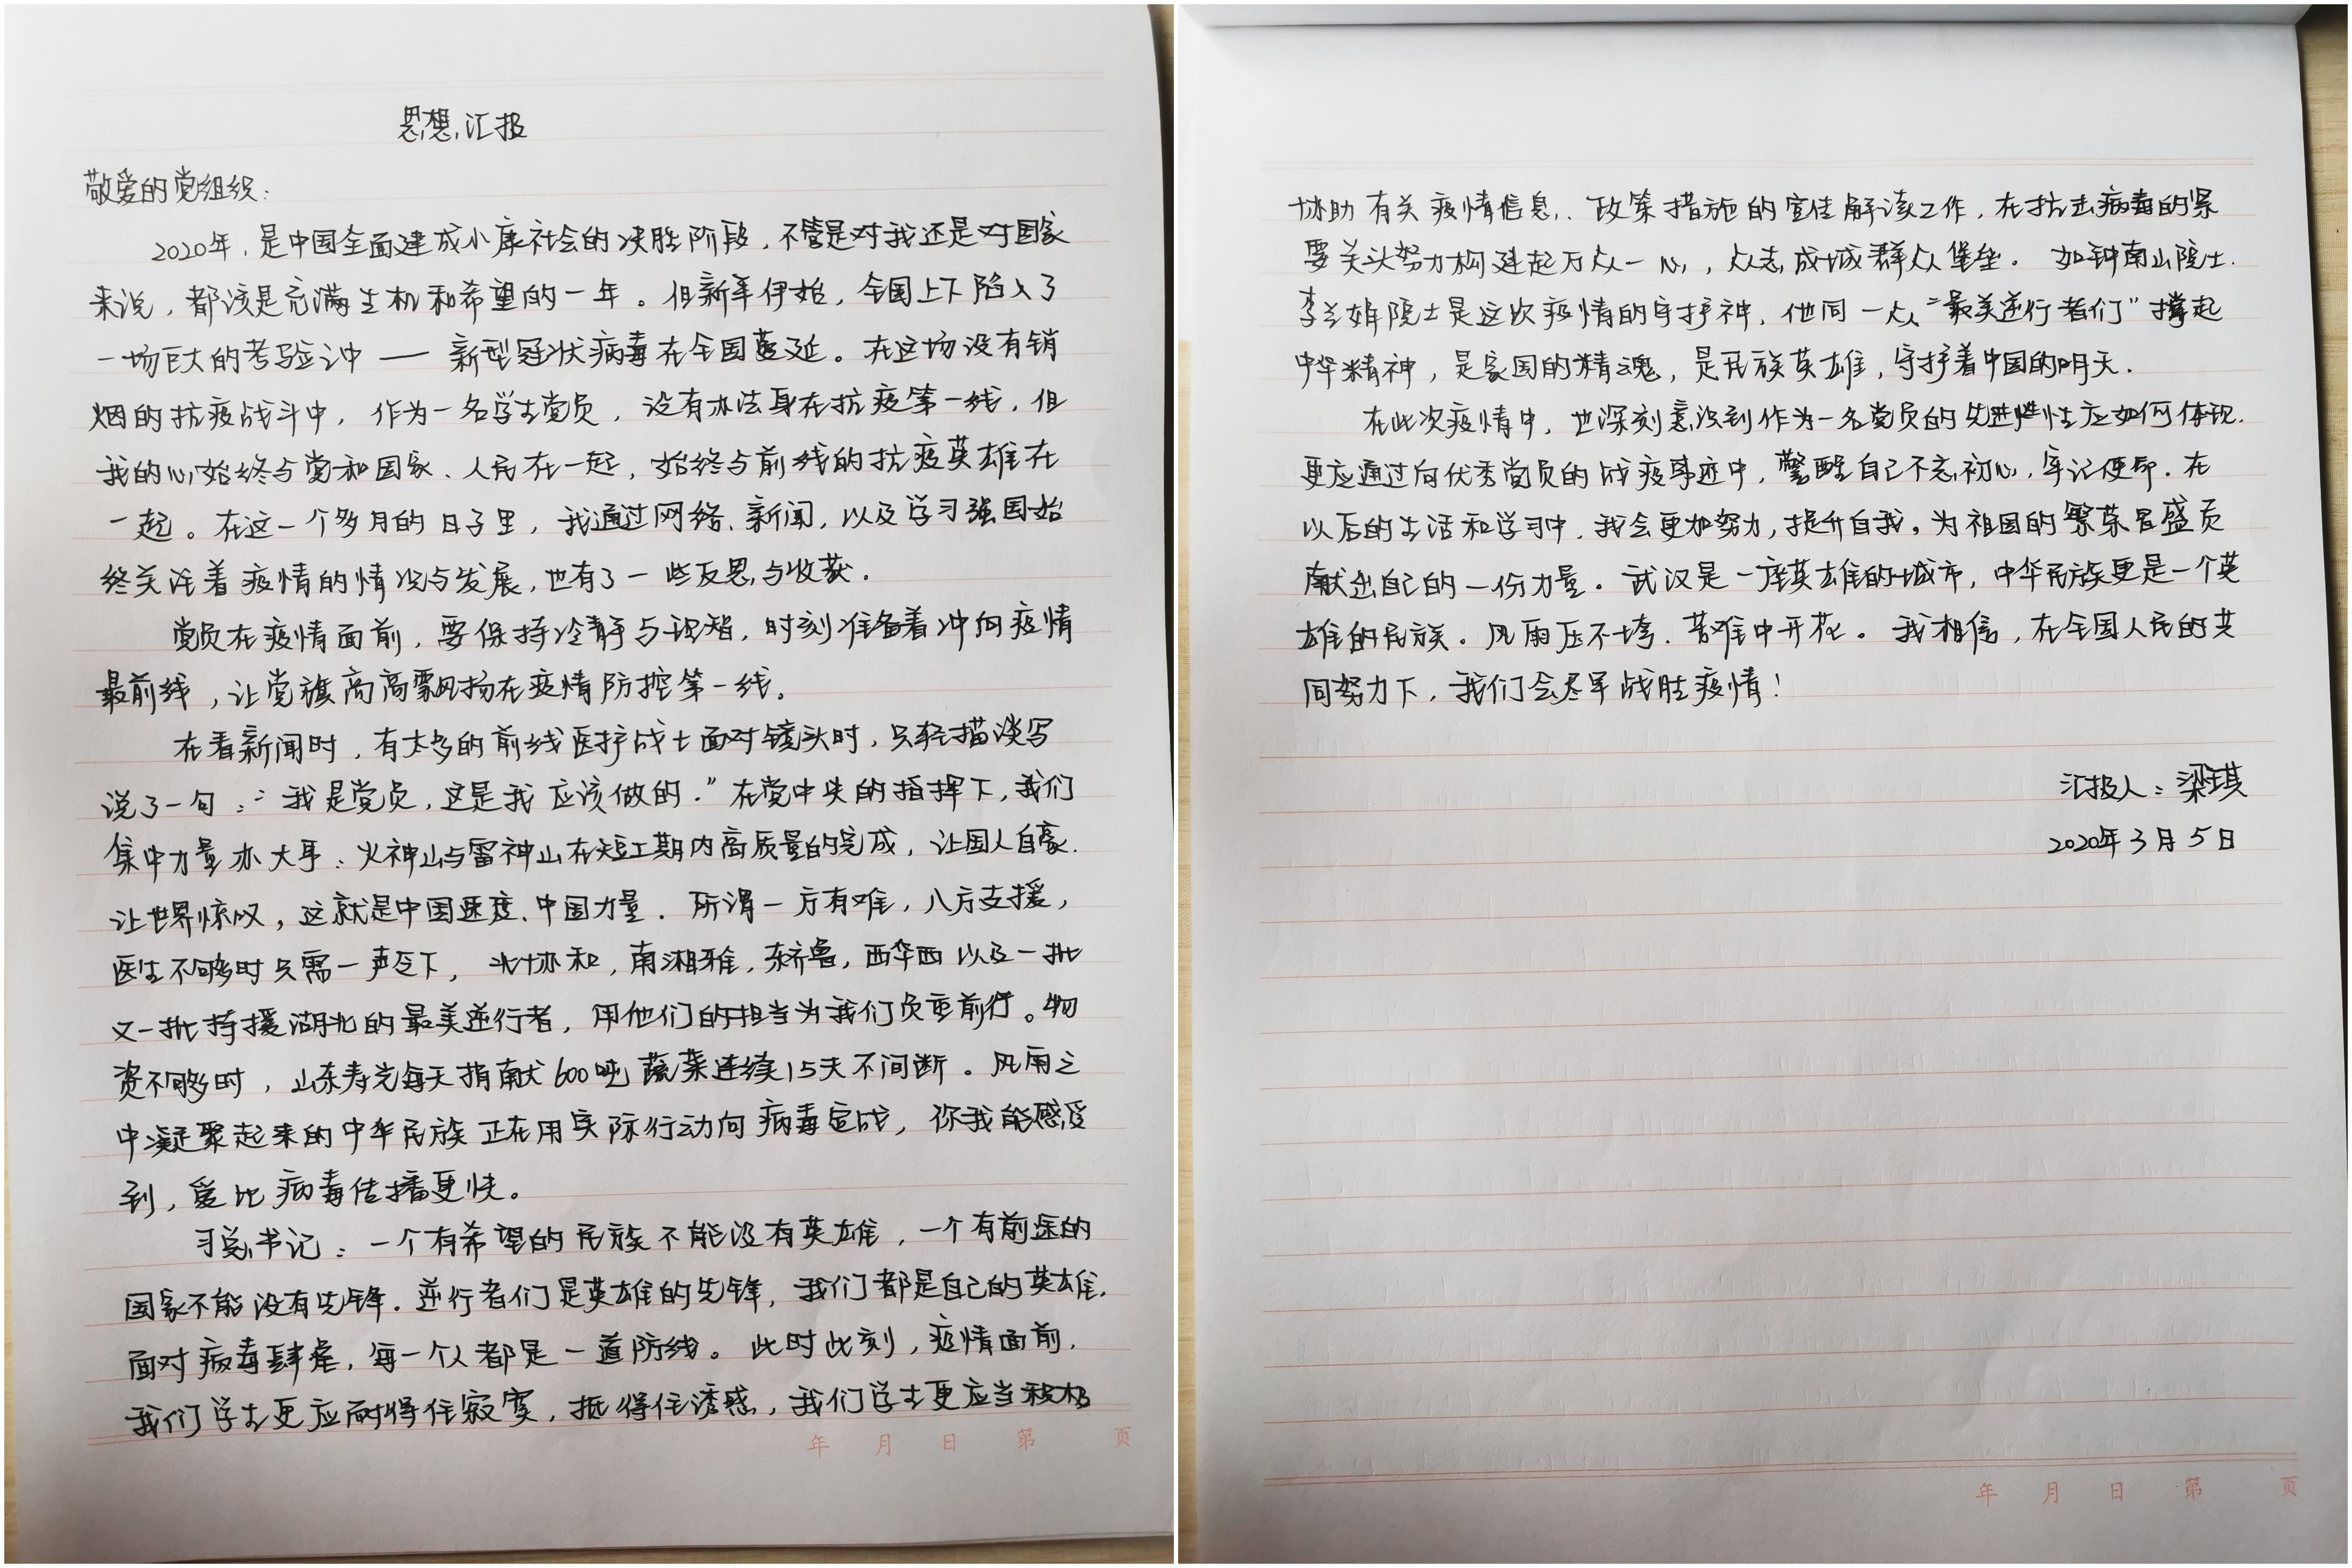 思想汇报
敬爱的党组织：
2020年，是中国全面建成小康社会的决胜阶段，不管是对我还是对国家
来说，都该是充满生机和希望的一年。但新年伊始，全国上下陷入了
一场巨大的考验之中——新型冠状病毒在全国蔓延。在这场没有销
烟的抗疫战斗中，作为一名学生党员，没有办法身在抗疫第一线，但
我的心始终与党和国家、人民在一起，始终与前线的抗疫英雄在
一起。在这一个多月的日子里，我通过网络、新闻，以及学习强国始
终关注着疫情的情况与发展，也有了一些反思与收获.
党员在疫情面前，要保持冷静与理智，时刻准备着冲向疫情
最前线，让党旗高高飘扬在疫情防控第一线。
在看新闻时，有太多的前线医护战士面对镜头时，只轻描淡写
说了一句：“我是党员，这是我应该做的.”在党中央的指挥下，我们
集中力量办大事：火神山与雷神山在短工期内高质量的完成，让国人自豪.
让世界惊叹，这就是中国速度、中国力量. 所谓一方有难，八方支援，
医生不够时只需一声令下，北协和，南湘雅，东齐鲁，西华西以及一批
又一批持援湖北的最美逆行者，用他们的担当为我们负重前行。物
资不够时，山东寿光每天捐献600吨蔬菜连续15天不间断。风雨之
中凝聚起来的中华民族正在用实际行动向病毒宣战，你我能感受
到，爱比病毒传播更快。
习总书记：一个有希望的民族不能没有英雄，一个有前途的
国家不能没有先锋. 逆行者们是英雄的先锋，我们都是自己的英雄.
面对病毒肆虐，每一个人都是一道防线。此时此刻，疫情面前，
我们学生更应耐得住寂寞，抵得住诱惑，我们学生更应当积极
年 月 日 第 页
协助有关疫情信息、政策措施的宣传解读工作，在抗击病毒的紧
要关头努力构建起万众一心，众志成城群众堡垒。如钟南山院士.
李兰娟院士是这次疫情的守护神，他同一众“最美逆行者们”撑起
中华精神，是家国的精魂，是民族英雄，守护着中国的明天.
在此次疫情中，也深刻意识到作为一名党员的先进性应如何体现.
更应通过向优秀党员的战疫事迹中，警醒自己不忘初心，牢记使命. 在
以后的生活和学习中，我会更加努力，提升自我，为祖国的繁荣昌盛贡
献出自己的一份力量. 武汉是一座英雄的城市，中华民族更是一个英
雄的民族. 风雨压不垮，苦难中开花。我相信，在全国人民的共
同努力下，我们会尽早战胜疫情！
汇报人：梁琪
2020年3月5日
年 月 日 第 页